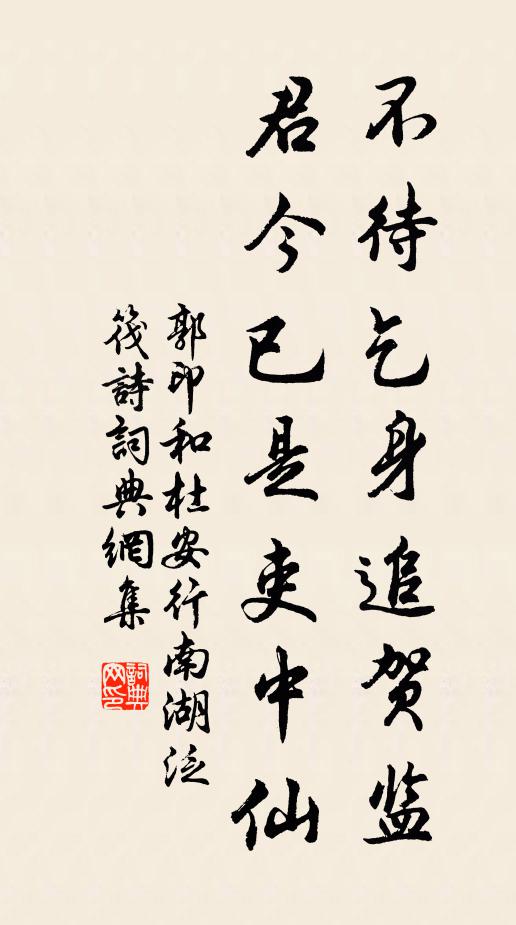 不待乞身追贺监
君今已是吏中仙
郭印和杜安行南湖泛
筏詩詞典網集
詞典网印